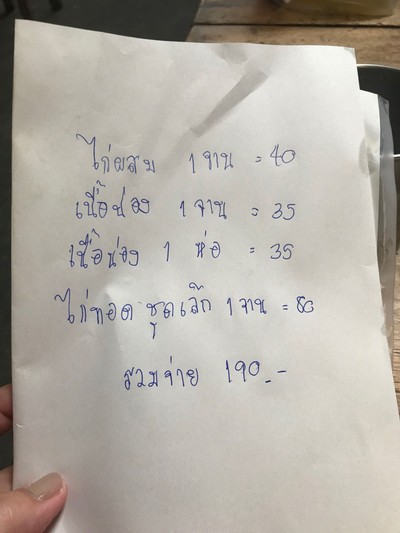 ไก่ผสม 1 จาน = 40
เนื้อน่อง 1 จาน = 35
เนื้อน่อง 1 ห่อ = 35
ไก่ทอด ชุดเล็ก 1 จาน = 80
รวมจ่าย 190.-